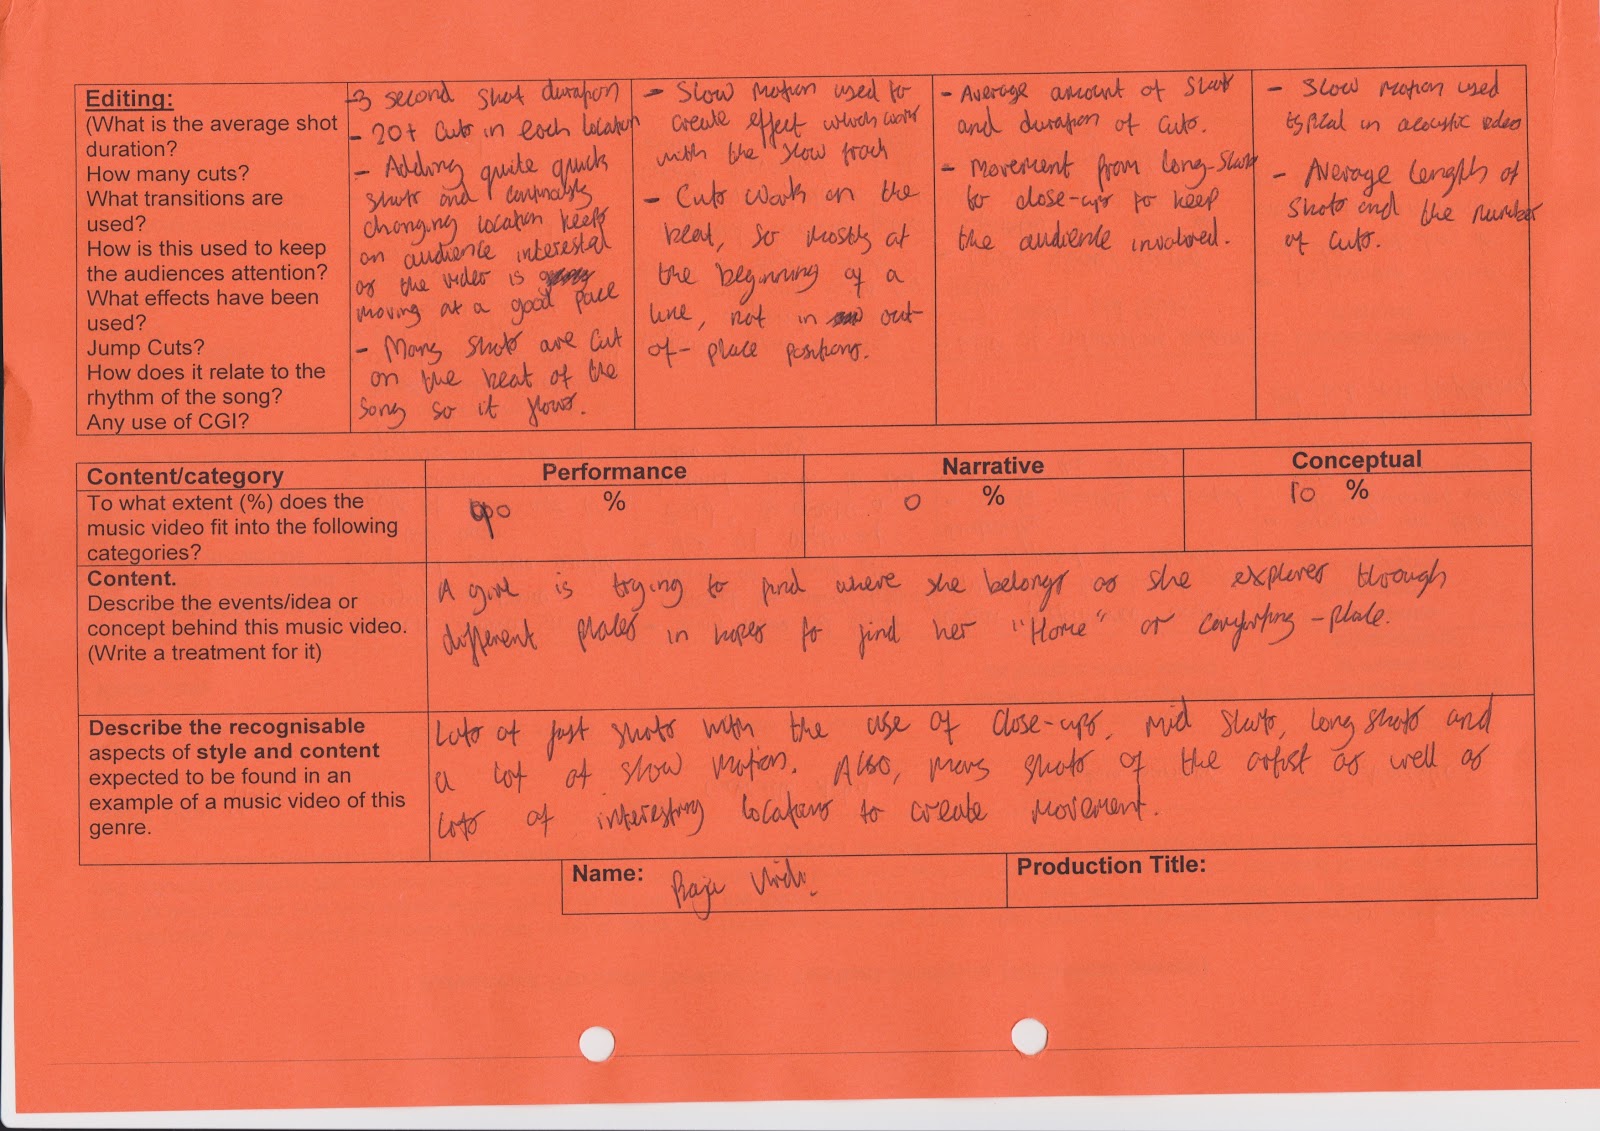 Editing:
(What is the average shot
duration?
How many cuts?
What transitions are
used?
How is this used to keep
the audiences attention?
What effects have been
used?
Jump Cuts?
How does it relate to the
rhythm of the song?
Any use of CGI?
-3 second shot duration
- 20+ cuts in each location
- Adding quite quick
shots and continously
changing location keeps
an audience interested
as the video is
moving at a good pace
- Many shots are cut
on the beat of the
song so it flows.
- Slow motion used to
create effect which work
with the slow track
- Cuts work on the
beat, so mostly at
the beginning of a
line, not in out-
of- place positions.
- Average amount of shots
and duration of cuts.
- Movement from long-shots
to close-ups to keep
the audience involved.
- Slow motion used
typical in acoustic video
- Average length of
shots and the number
of cuts.
Content/category Performance Narrative Conceptual
To what extent (%) does the
music video fit into the following
categories?
90 % 0 % 10 %
Content.
Describe the events/idea or
concept behind this music video.
(Write a treatment for it)
A girl is trying to find where she belongs as she explores through
different places in hopes to find her "Home" or comforting-place.
Describe the recognisable
aspects of style and content
expected to be found in an
example of a music video of this
genre.
Lots of fast shots with the use of close-ups, mid shots, long shots and
a lot of slow motion. Also, many shots of the artist as well as
lots of interesting locations to create movement.
Name:
Production Title: